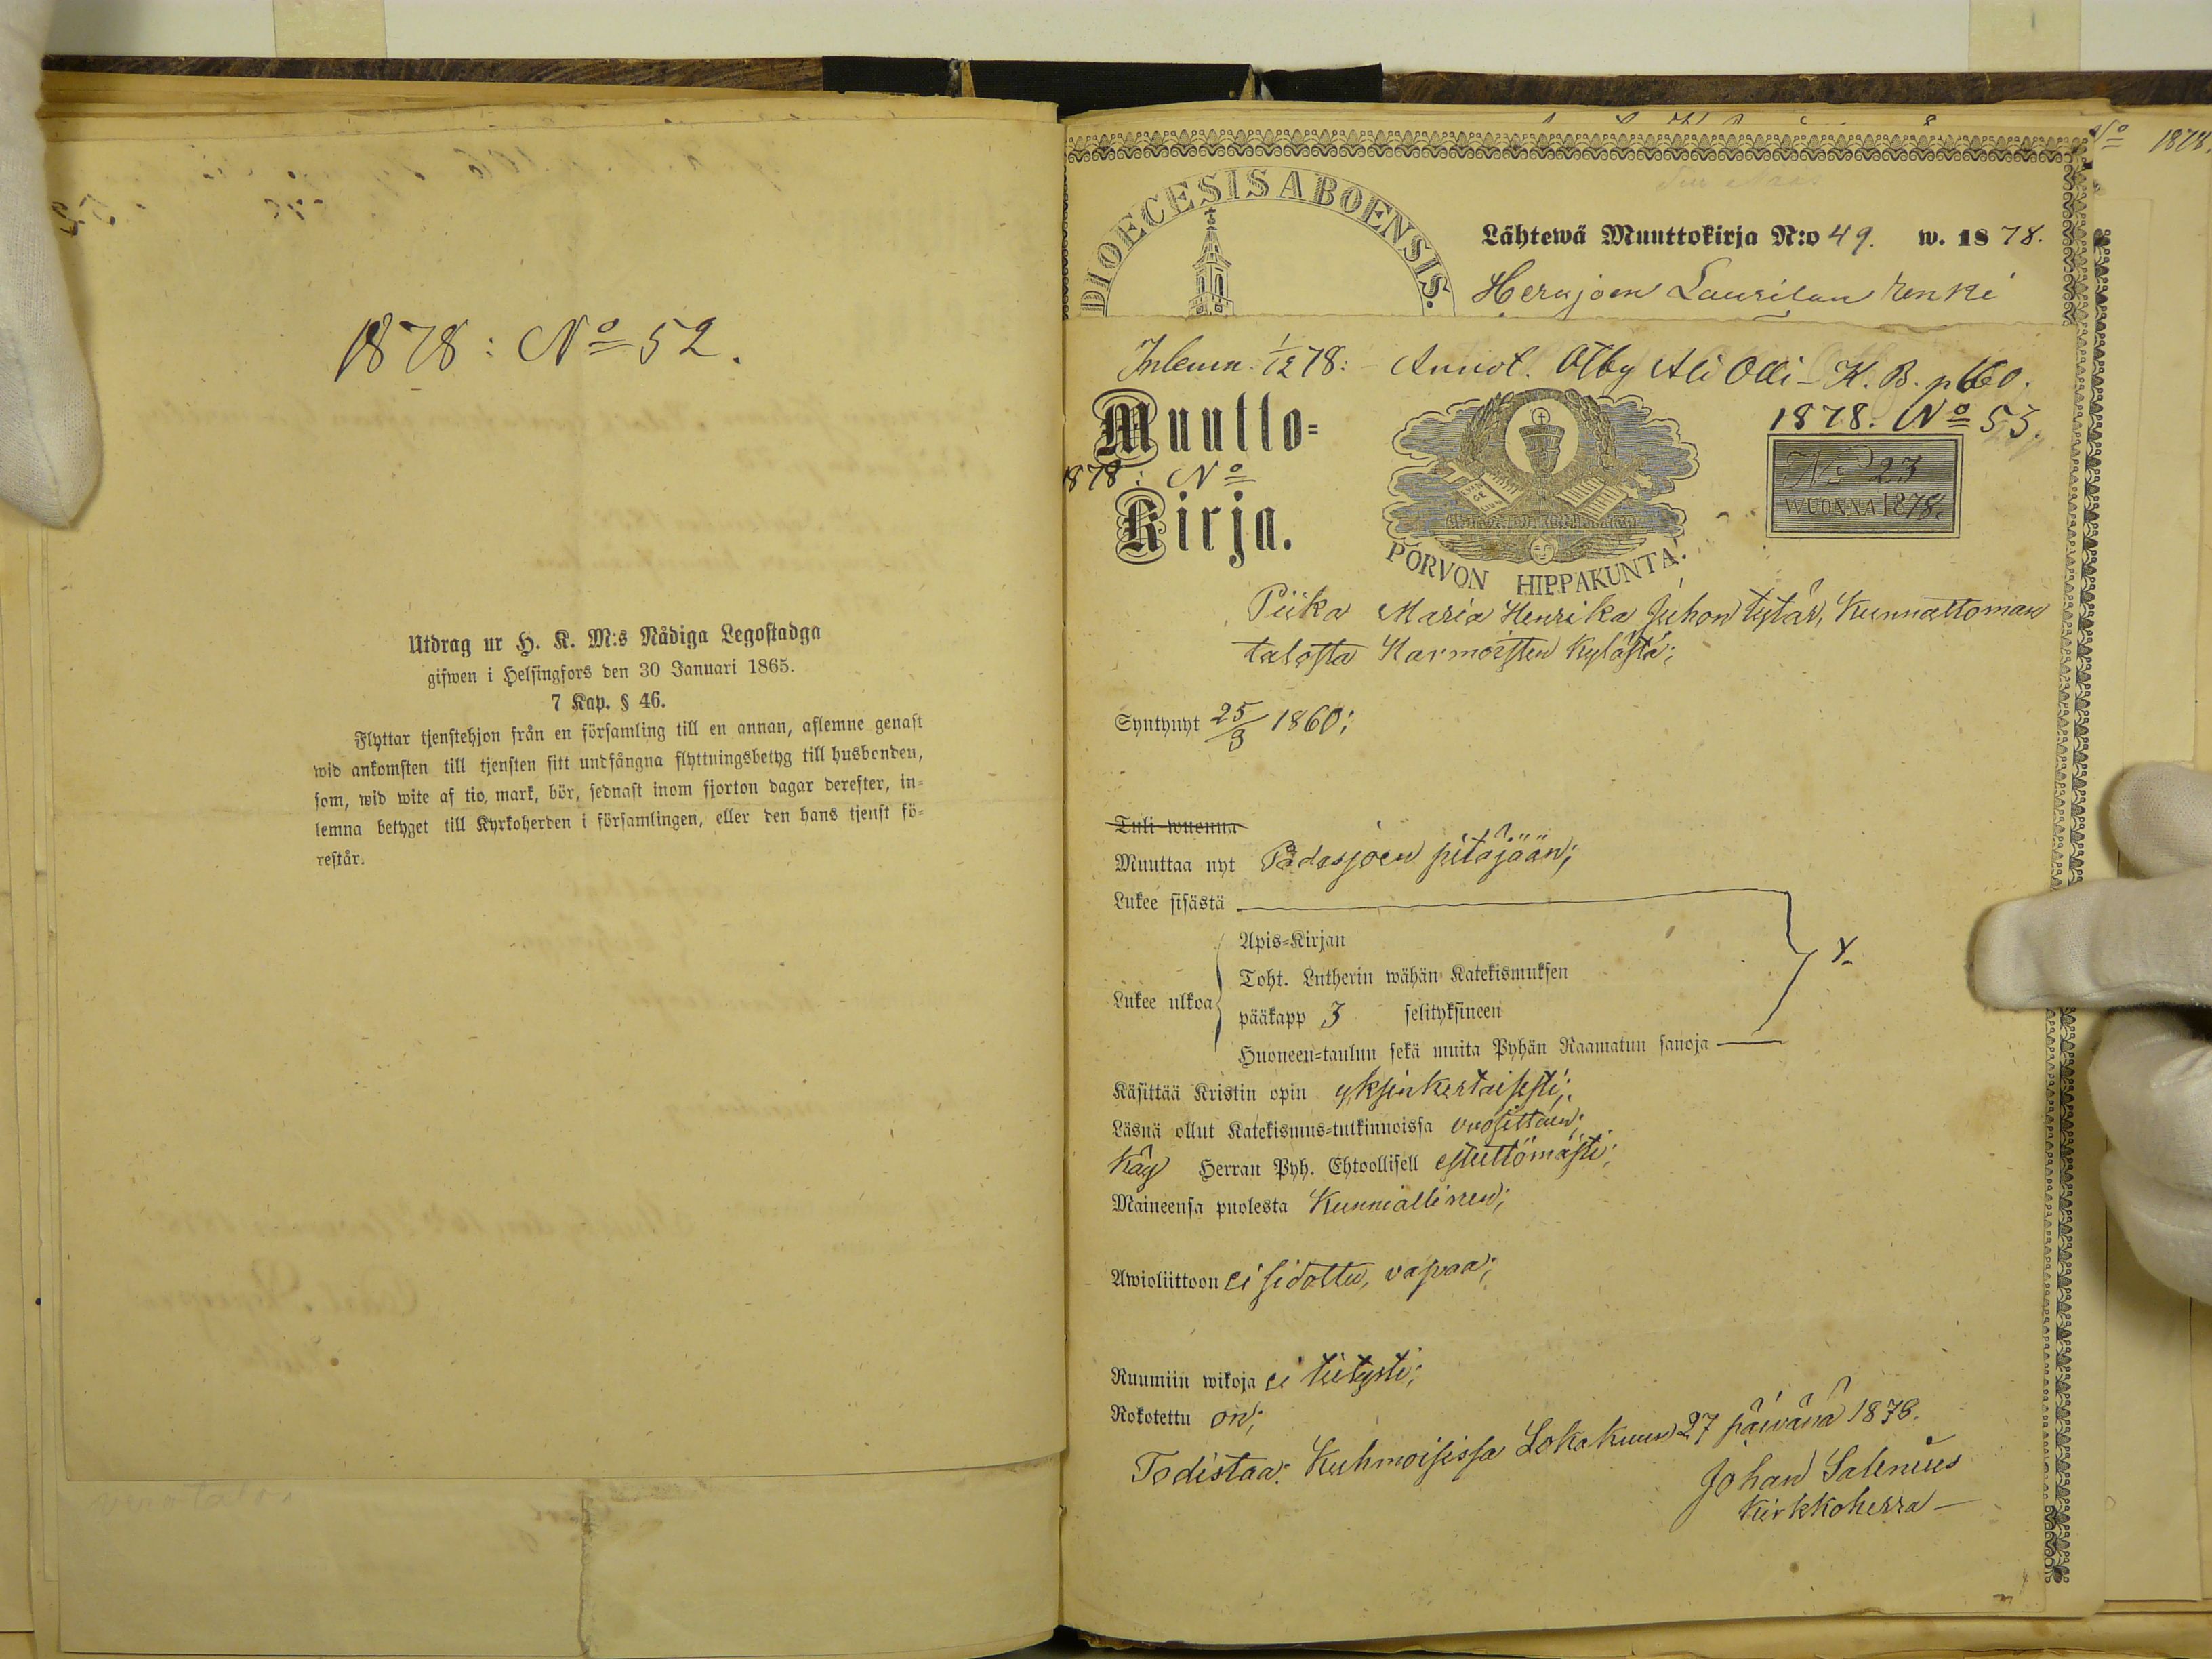 1878: No 52.
Utdrag ur H. K. M:s Nådiga Legostadga
gifwen i Helsingfors den 30 Januari 1865.
7 Kap. § 46.
Flyttar tjenstehjon från en församling till en annan, aflemne genast
wid ankomsten till tjensten sitt undfångna flyttningsbetyg till husbonden,
som, wid wite af tio, mark, bör, sednast inom fjorton dagar derefter, in-
lemna betyget till Kyrkoherden i församlingen, eller den hans tjenst fö-
restår.
No 1878.
DIOECESIS ABOENSIS.
Lähtewä Muuttokirja N:o 49. w. 1878.
Herajoen Laurilan renki
Inlemn. 1/12 78: Annot. Olby Ali Olli - K. B. p 660.
1878. No 53.
Muutto-
1878: No
Kirja.
EVAN
GE
LIUM
PORVON HIPPAKUNTA.
No 23
WUONNA 1878.
Piika Maria Henrika Juhon tytär, Kunnattoman
talosta Harmoisten kylästä;
Syntynyt 25/3 1860;
Tuli wuonna
Muuttaa nyt Padasjoen pitäjään;
Lukee sisästä
Apis-Kirjan
Toht. Lutherin wähän Katekismuksen
Lukee ulkoa
pääkapp 3 selityksineen
Huoneen-taulun sekä muita Pyhän Raamatun sanoja
Käsittää Kristin opin yksinkertaisesti;
Läsnä ollut Katekismus-tutkinnoissa vuosittain;
Käy Herran Pyh. Ehtoollisell esteettömästi;
Maineensa puolesta Kunniallinen;
Awioliittoon ei sidottu, vapaa;
Ruumiin wikoja ei tietysti;
Rokotettu on;
Todistaa: Kuhmoisissa Lokakuun 27 päivänä 1878.
Johan Salenius
Kirkkoherra